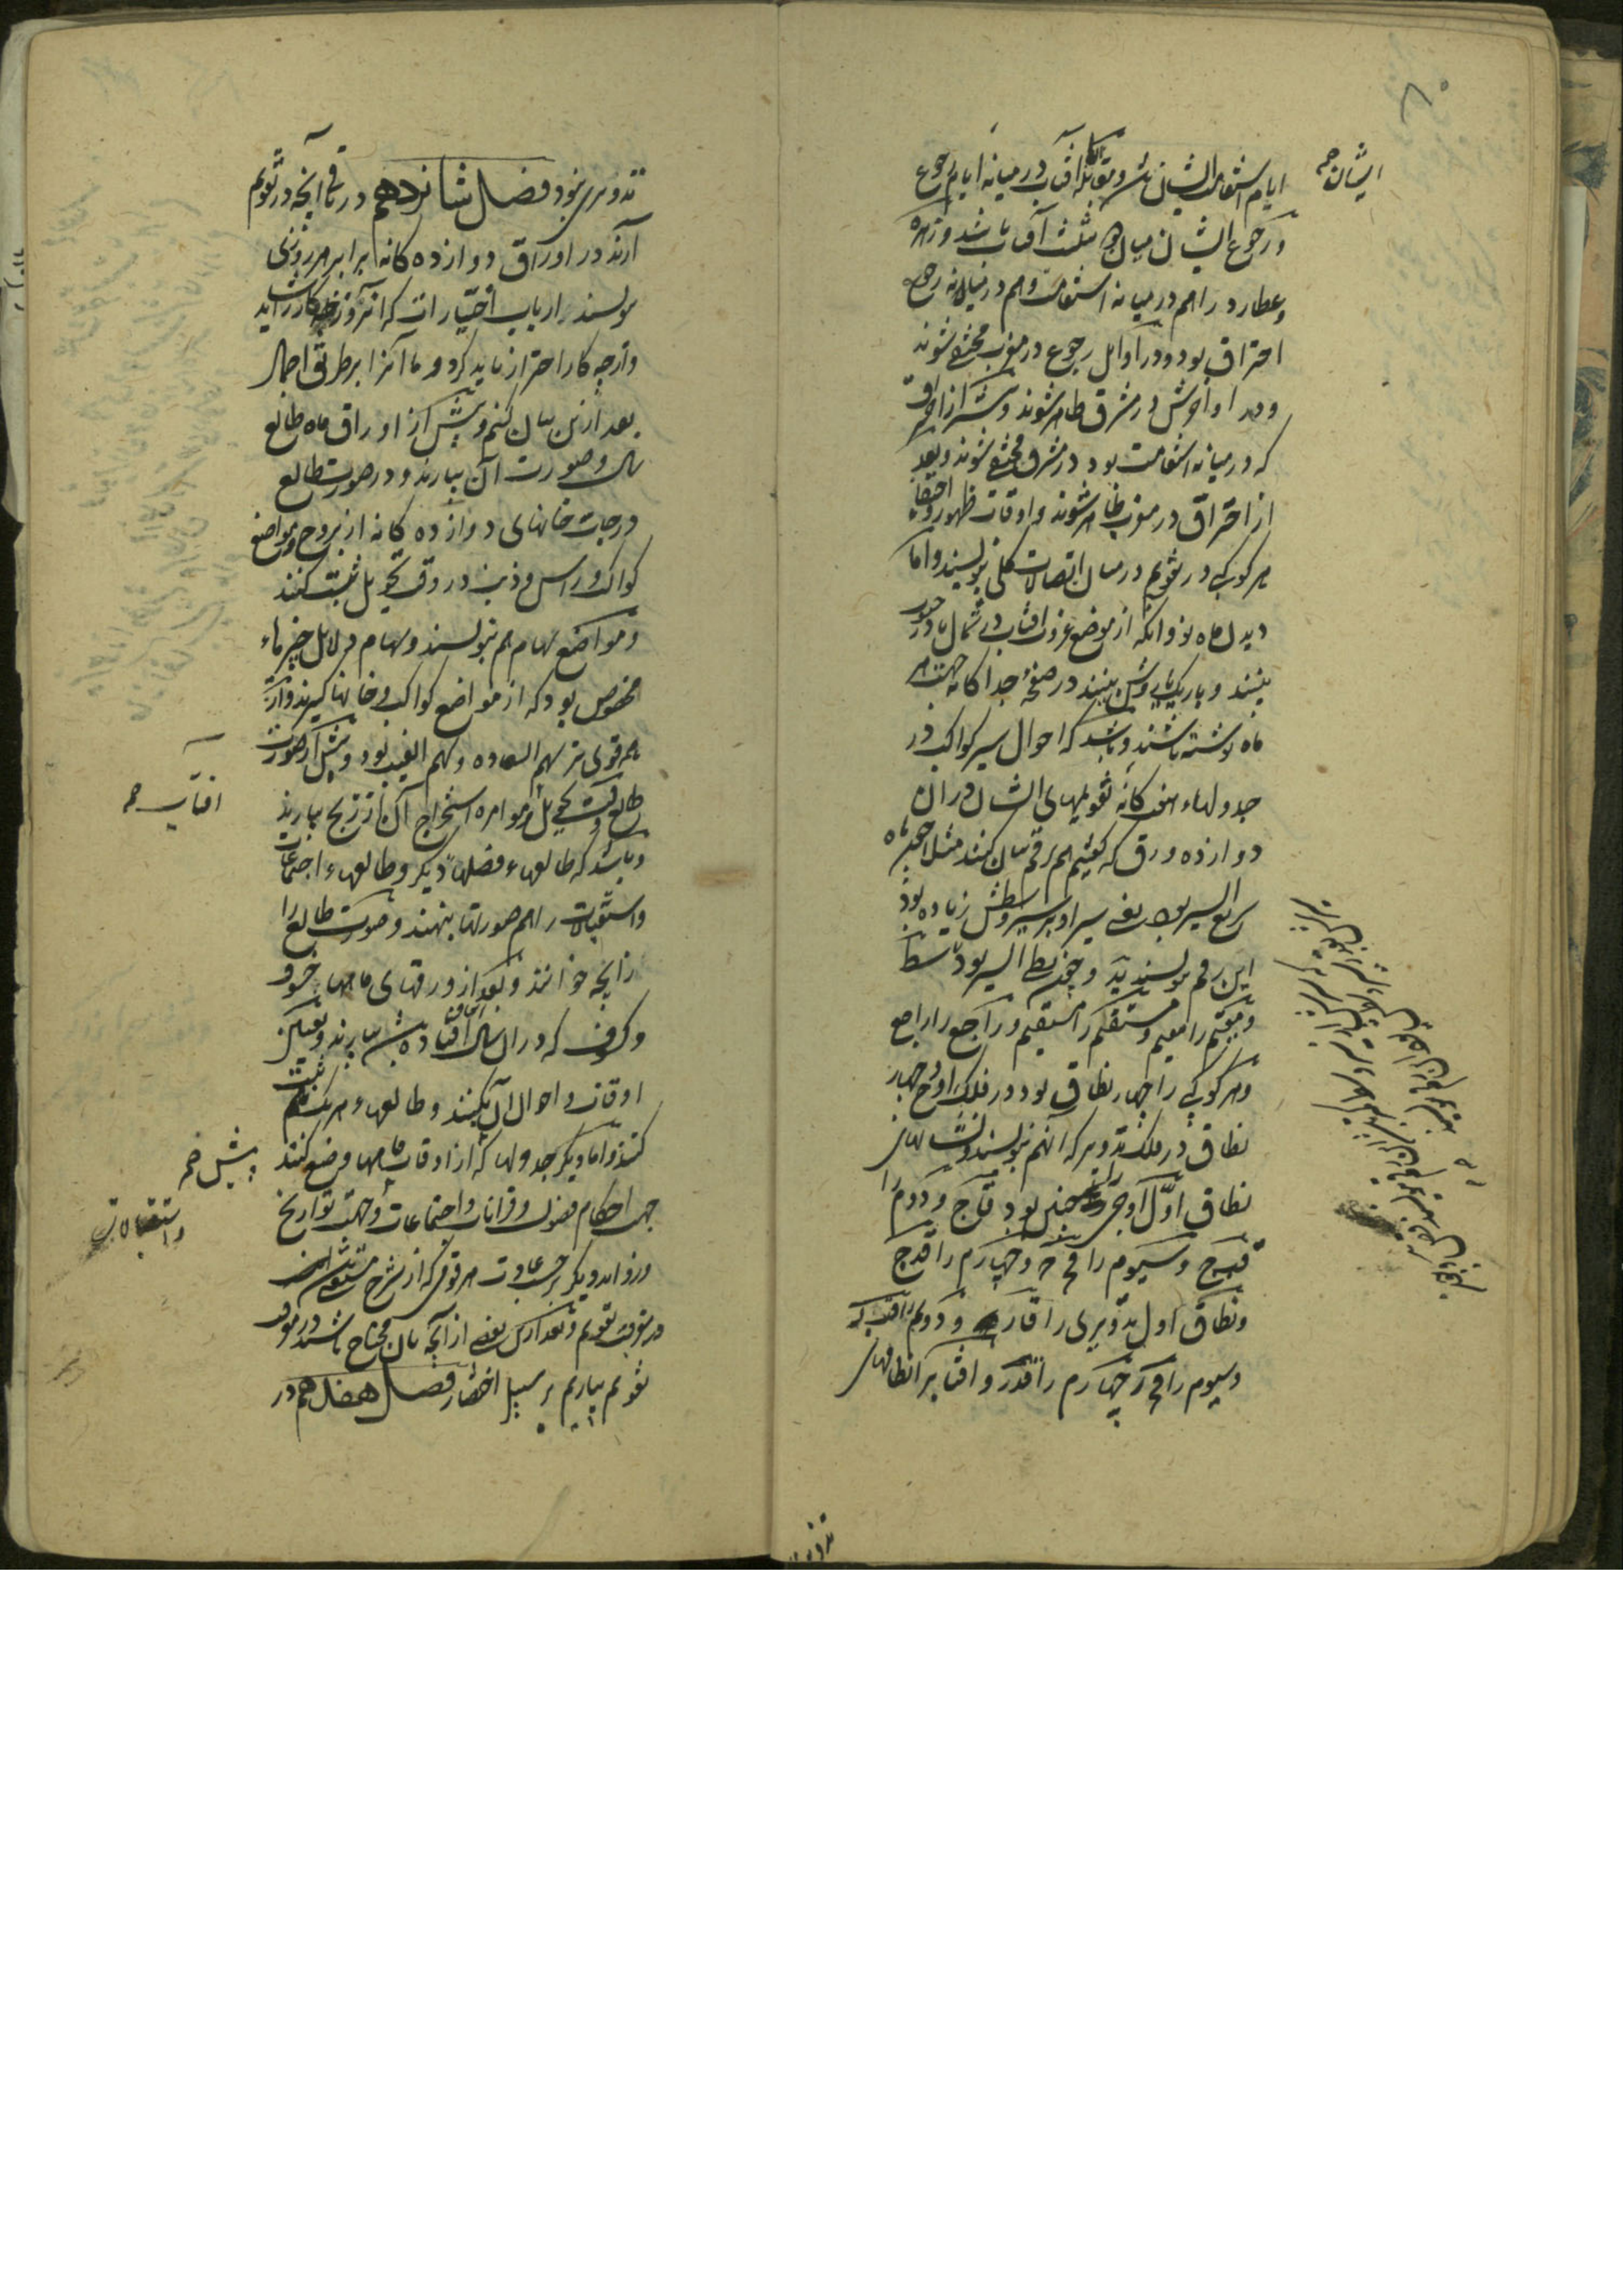 ایام استقامت ایشان باشد و مقابلهٔ آفتاب در میانه ایام رجوع
و رجوع ایشان میان دو تثلیث آفتاب باشد و زهره
و عطارد را هم در میانه استقامت و هم در میانه رجوع
احتراق بود و در اوایل رجوع در مغرب مختفی شوند
و در اواخرش در مشرق ظاهر شوند و پیش از احتراق
که در میانه استقامت بود در مشرق مختفی شوند و بعد
از احتراق در مغرب ظاهر شوند و اوقات ظهور و اختفاء
هر کوکب در تقویم در میان اتصالات کلی بنویسند و اما
دیدن ماه نو و آنکه از موضع غروب آفتاب در شمال یا در جنوب
بینند و باریک یا روشن بینند در صفحهٔ جداگانه جهت هر
ماه نوشته باشند و باشد که احوال سیر کواکب در
جدولهاء هفتگانه تقویمهای ایشان در آن
دوازده ورق که گفتیم هم برقم بیان کنند مثلا چون ماه
سریع السیر بود یعنی سیر او بر سیر وسطش زیاده بود
این رقم بنویسند ید و چون بطی السیر بود طا
و مقیم را مقیم و مستقیم را مستقیم و راجع را راجع
و هر کوکبی را چهار نطاق بود در فلک اوج و چهار
نطاق در فلک تدویر که آنهم بنویسند و نشانهای
نطاق اوّل اوجی چنین بود قاج و دوم را
قبج و سیوم را قجج و چهارم را قدج
و نطاق اول تدویری را قار و دوم را قبر
و سیوم را قجر و چهارم را قدر و آفتاب را نطاقهای
ایشان صح
تدویری نبود فصل شانزدهم در باقی آنچه در تقویم
آرند در اوراق دوازده گانه برابر هر روزی
بنویسند ارباب اختیارات که آنروز چه کار را شاید
و از چه کار احتراز باید کرد و ما آنرا بر طریق اجمال
بعد ازین بیان کنیم و پیش از اوراق ماه طالع
سال و صورت آن بیارند و در صورت طالع
درجات خانهای دوازده گانه از بروج و مواضع
کواکب و راس و ذنب در وقت تحویل ثبت کنند
و مواضع سهام هم بنویسند و سهام دلایل چیزهاء
مخصوص بود که از مواضع کواکب و خانها گیرند و از
همه قوی تر سهم السعاده و سهم الغیب بود و پیش از صورت
طالع وقت تحویل و موامره استخراج آن از زیج بیارند
و باشد که طالعهاء فصلهاء دیگر و طالعهاء اجتماعات
و استقبالات را هم صورتها بنهند و صورت طالع را
زایجه خوانند و بعد از ورقهای ماهها خسوف
و کسوف که در آن سال اتفاق افتاده باشد بیارند و تعیین
اوقات و احوال آن بکنند و طالعهاء هر یک ثبت
کنند و اما دیگر جدولها که از اوقات ماهها وضع کنند
جهت احکام فصول و قرانات و اجتماعات و جهت تواریخ
و زواید دیگر بر حسب عادت هر قومی که از شرح مستغنی است
در معرفت تقویم و بعد ازین بعضی از آنچه بان محتاج باشند در معرفت
تقویم بیاریم بر سبیل اختصار فصل هفدهم در
آفتاب صح
پیش صح
و استقبالات